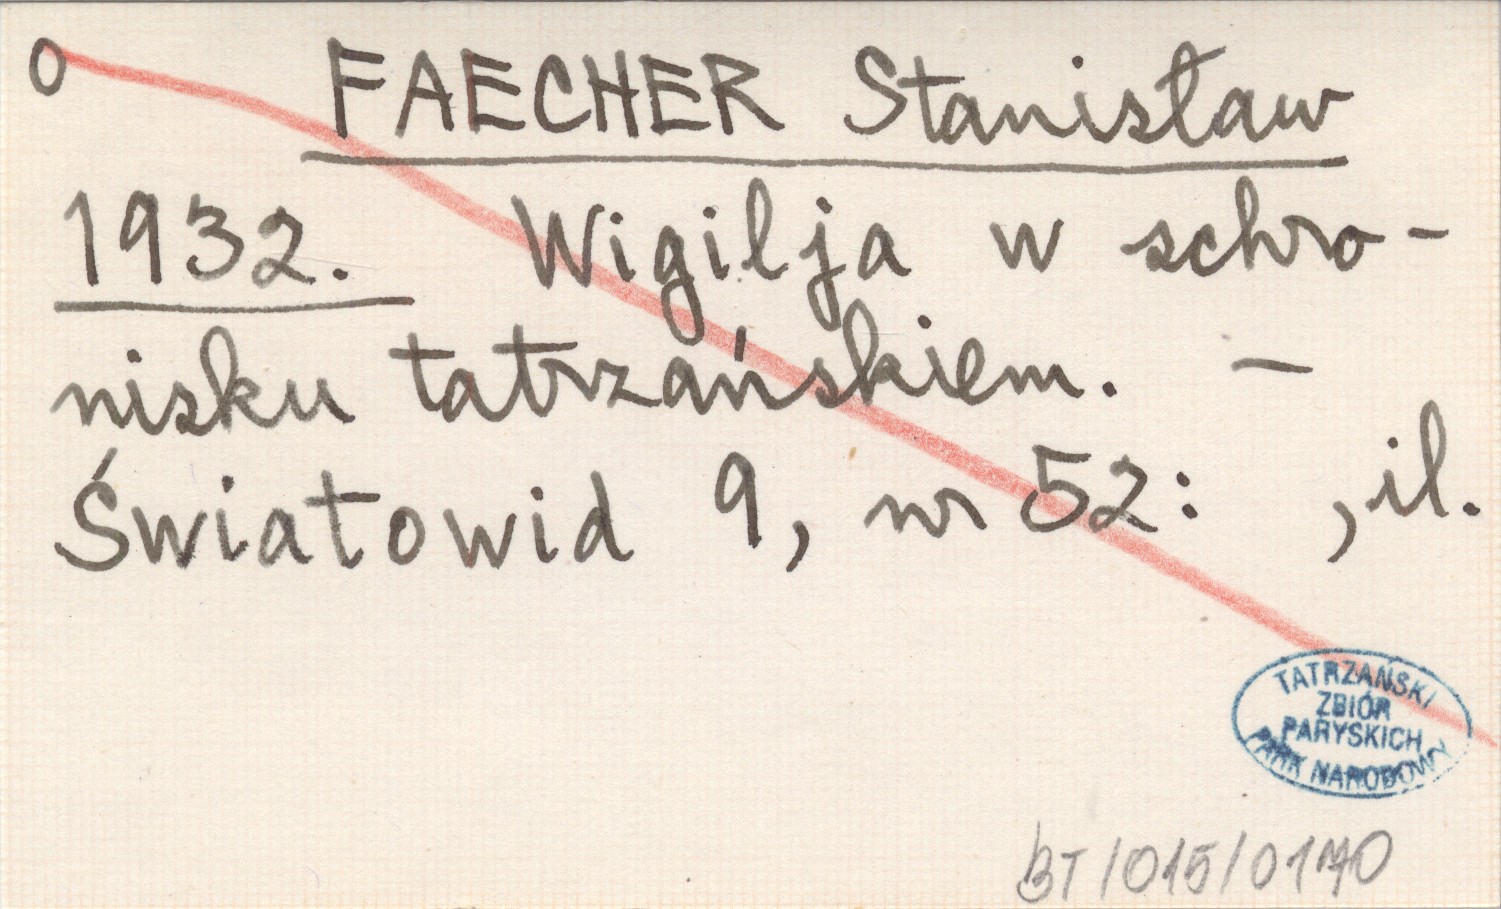 O FAECHER Stanisław
1932. Wigilja w schro-
nisku tatrzańskiem. —
Światowid 9, nr 52: , il.
TATRZAŃSKI
ZBIÓR
PARYSKICH
PARK NARODOWY
BT/015/0170